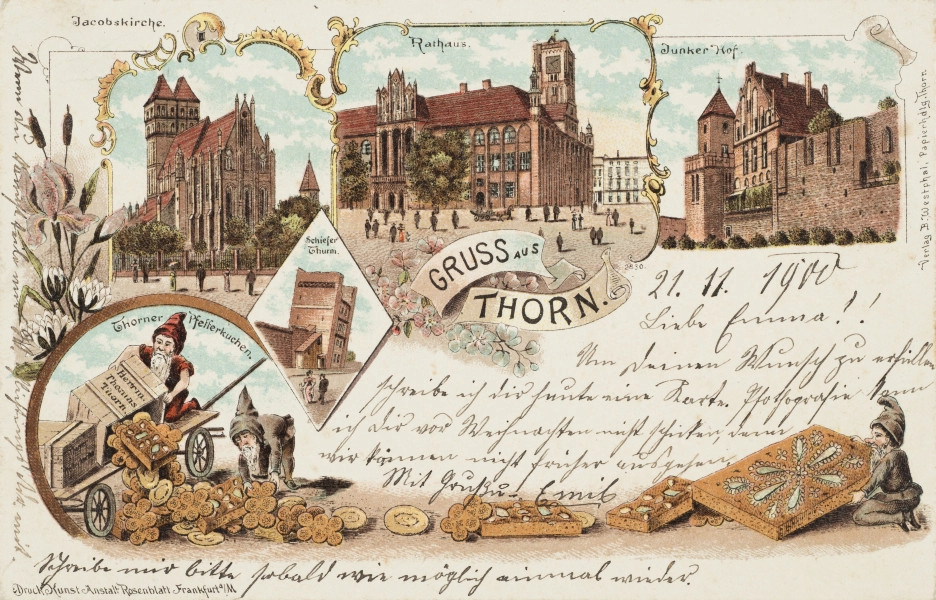 Jacobskirche.
Rathaus.
Junker Hof.
Schiefer
Thurm.
GRUSS AUS
THORN.
2830.
Thorner Pfefferkuchen.
Herrm.
Thomas
Thorn.
21. 11. 1900
Liebe Emma!!
Um deinen Wunsch zu erfüllen
schreibe ich dir heute eine Karte. Photografie kann
ich dir vor Weihnachten nicht schicken, denn
wir können nicht früher ausgehen
Mit Gruß Emil
Schreibe mir bitte sobald wie möglich einmal wieder.
Druck Kunst-Anstalt Rosenblatt Frankfurt a/M
Verlag B. Westphal, Papierhdlg. Thorn.